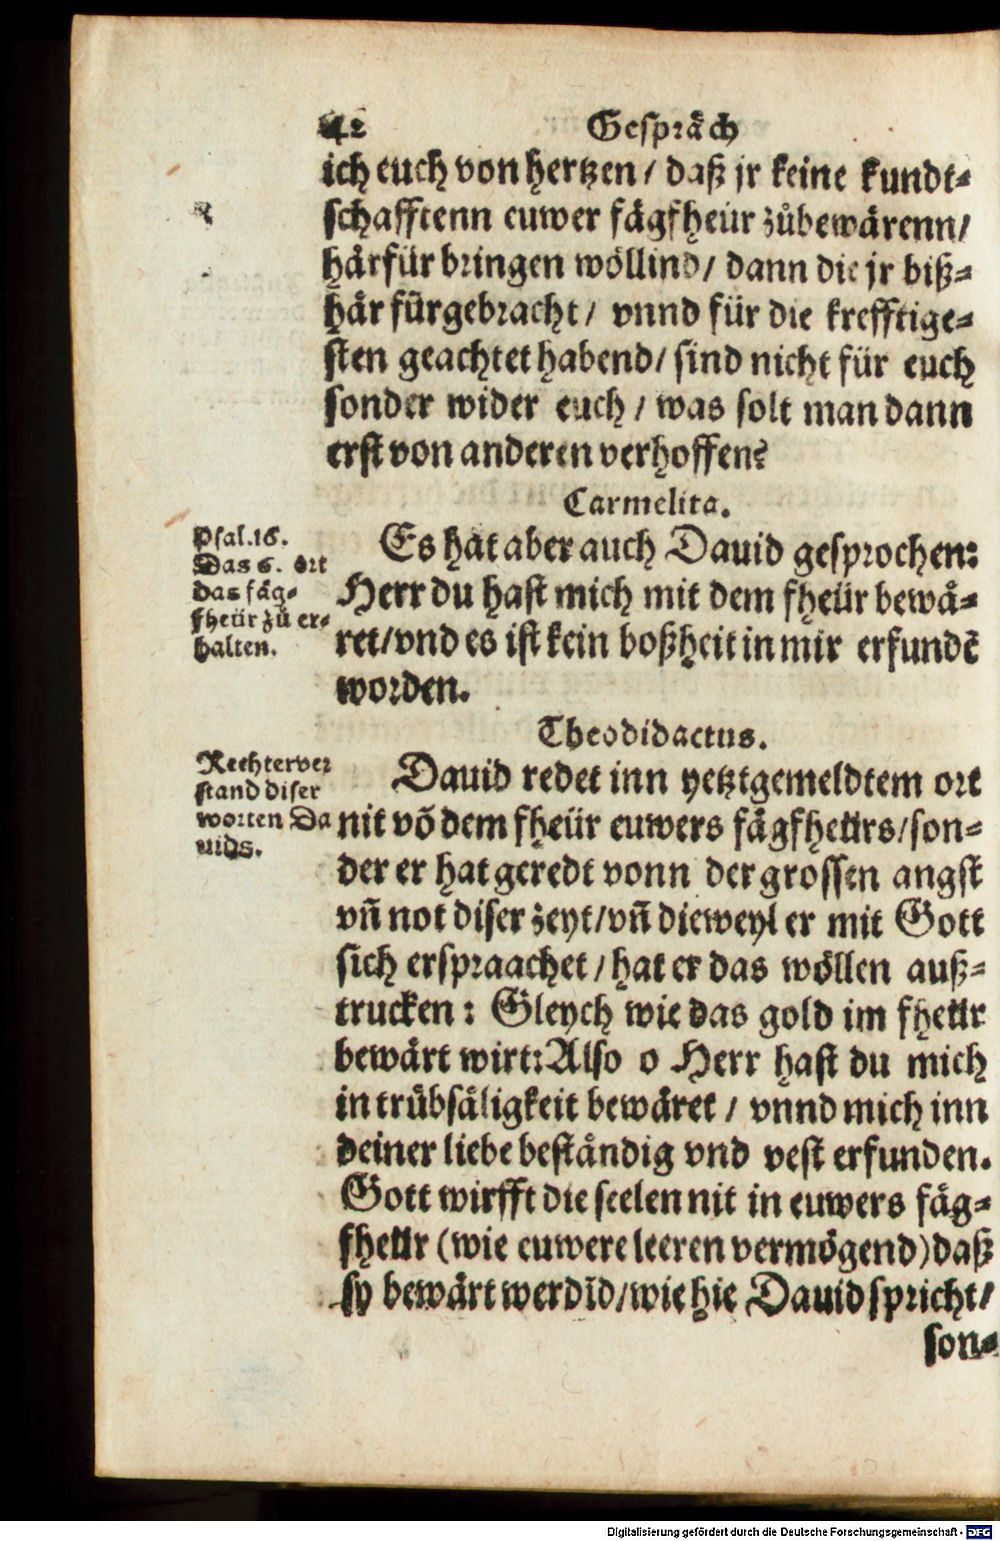 42 Gespräch
ich euch von hertzen / daß jr keine kundt⸗
schafftenn euwer fägfheür zůbewärenn /
härfür bringen wöllind / dann die jr biß⸗
här fürgebracht / vnnd für die krefftige⸗
sten geachtet habend / sind nicht für euch
sonder wider euch / was solt man dann
erst von anderen verhoffen?
Carmelita.
Psal. 16.
Das 6. ort
das fäg⸗
fheür zů er⸗
halten.
Es hat aber auch Dauid gesprochen:
Herr du hast mich mit dem fheür bewä⸗
ret / vnd es ist kein boßheit in mir erfundē
worden.
Theodidactus.
Rechter ver
stand diser
worten Da
uids.
Dauid redet inn yetztgemeldtem ort
nit võ dem fheür euwers fägfheürs / son⸗
der er hat geredt vonn der grossen angst
vñ not diser zeyt / vñ dieweyl er mit Gott
sich erspraachet / hat er das wöllen auß⸗
trucken : Gleych wie das gold im fheür
bewärt wirt: Also o Herr hast du mich
in trübsäligkeit bewäret / vnnd mich inn
deiner liebe beständig vnd vest erfunden.
Gott wirfft die seelen nit in euwers fäg⸗
fheür (wie euwere leeren vermögend) daß
sy bewärt werdīd / wie hie Dauid spricht /
son⸗
Digitalisierung gefördert durch die Deutsche Forschungsgemeinschaft - DFG